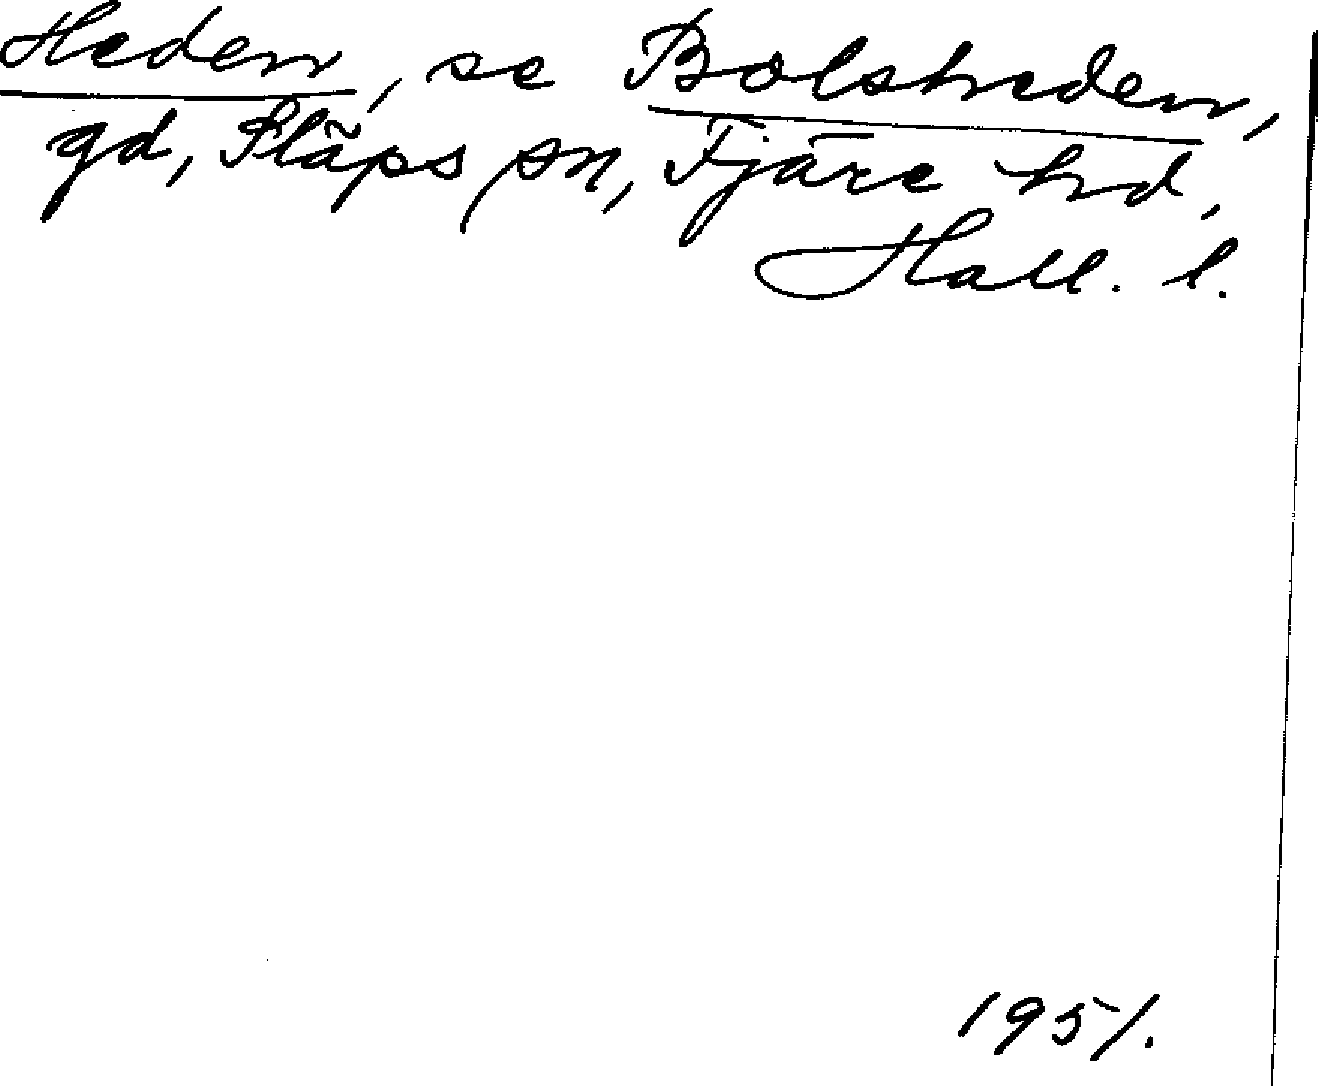 Heden, se Bolsheden,
gd, Släps sn, Fjäre hd,
Hall. l.
1951.